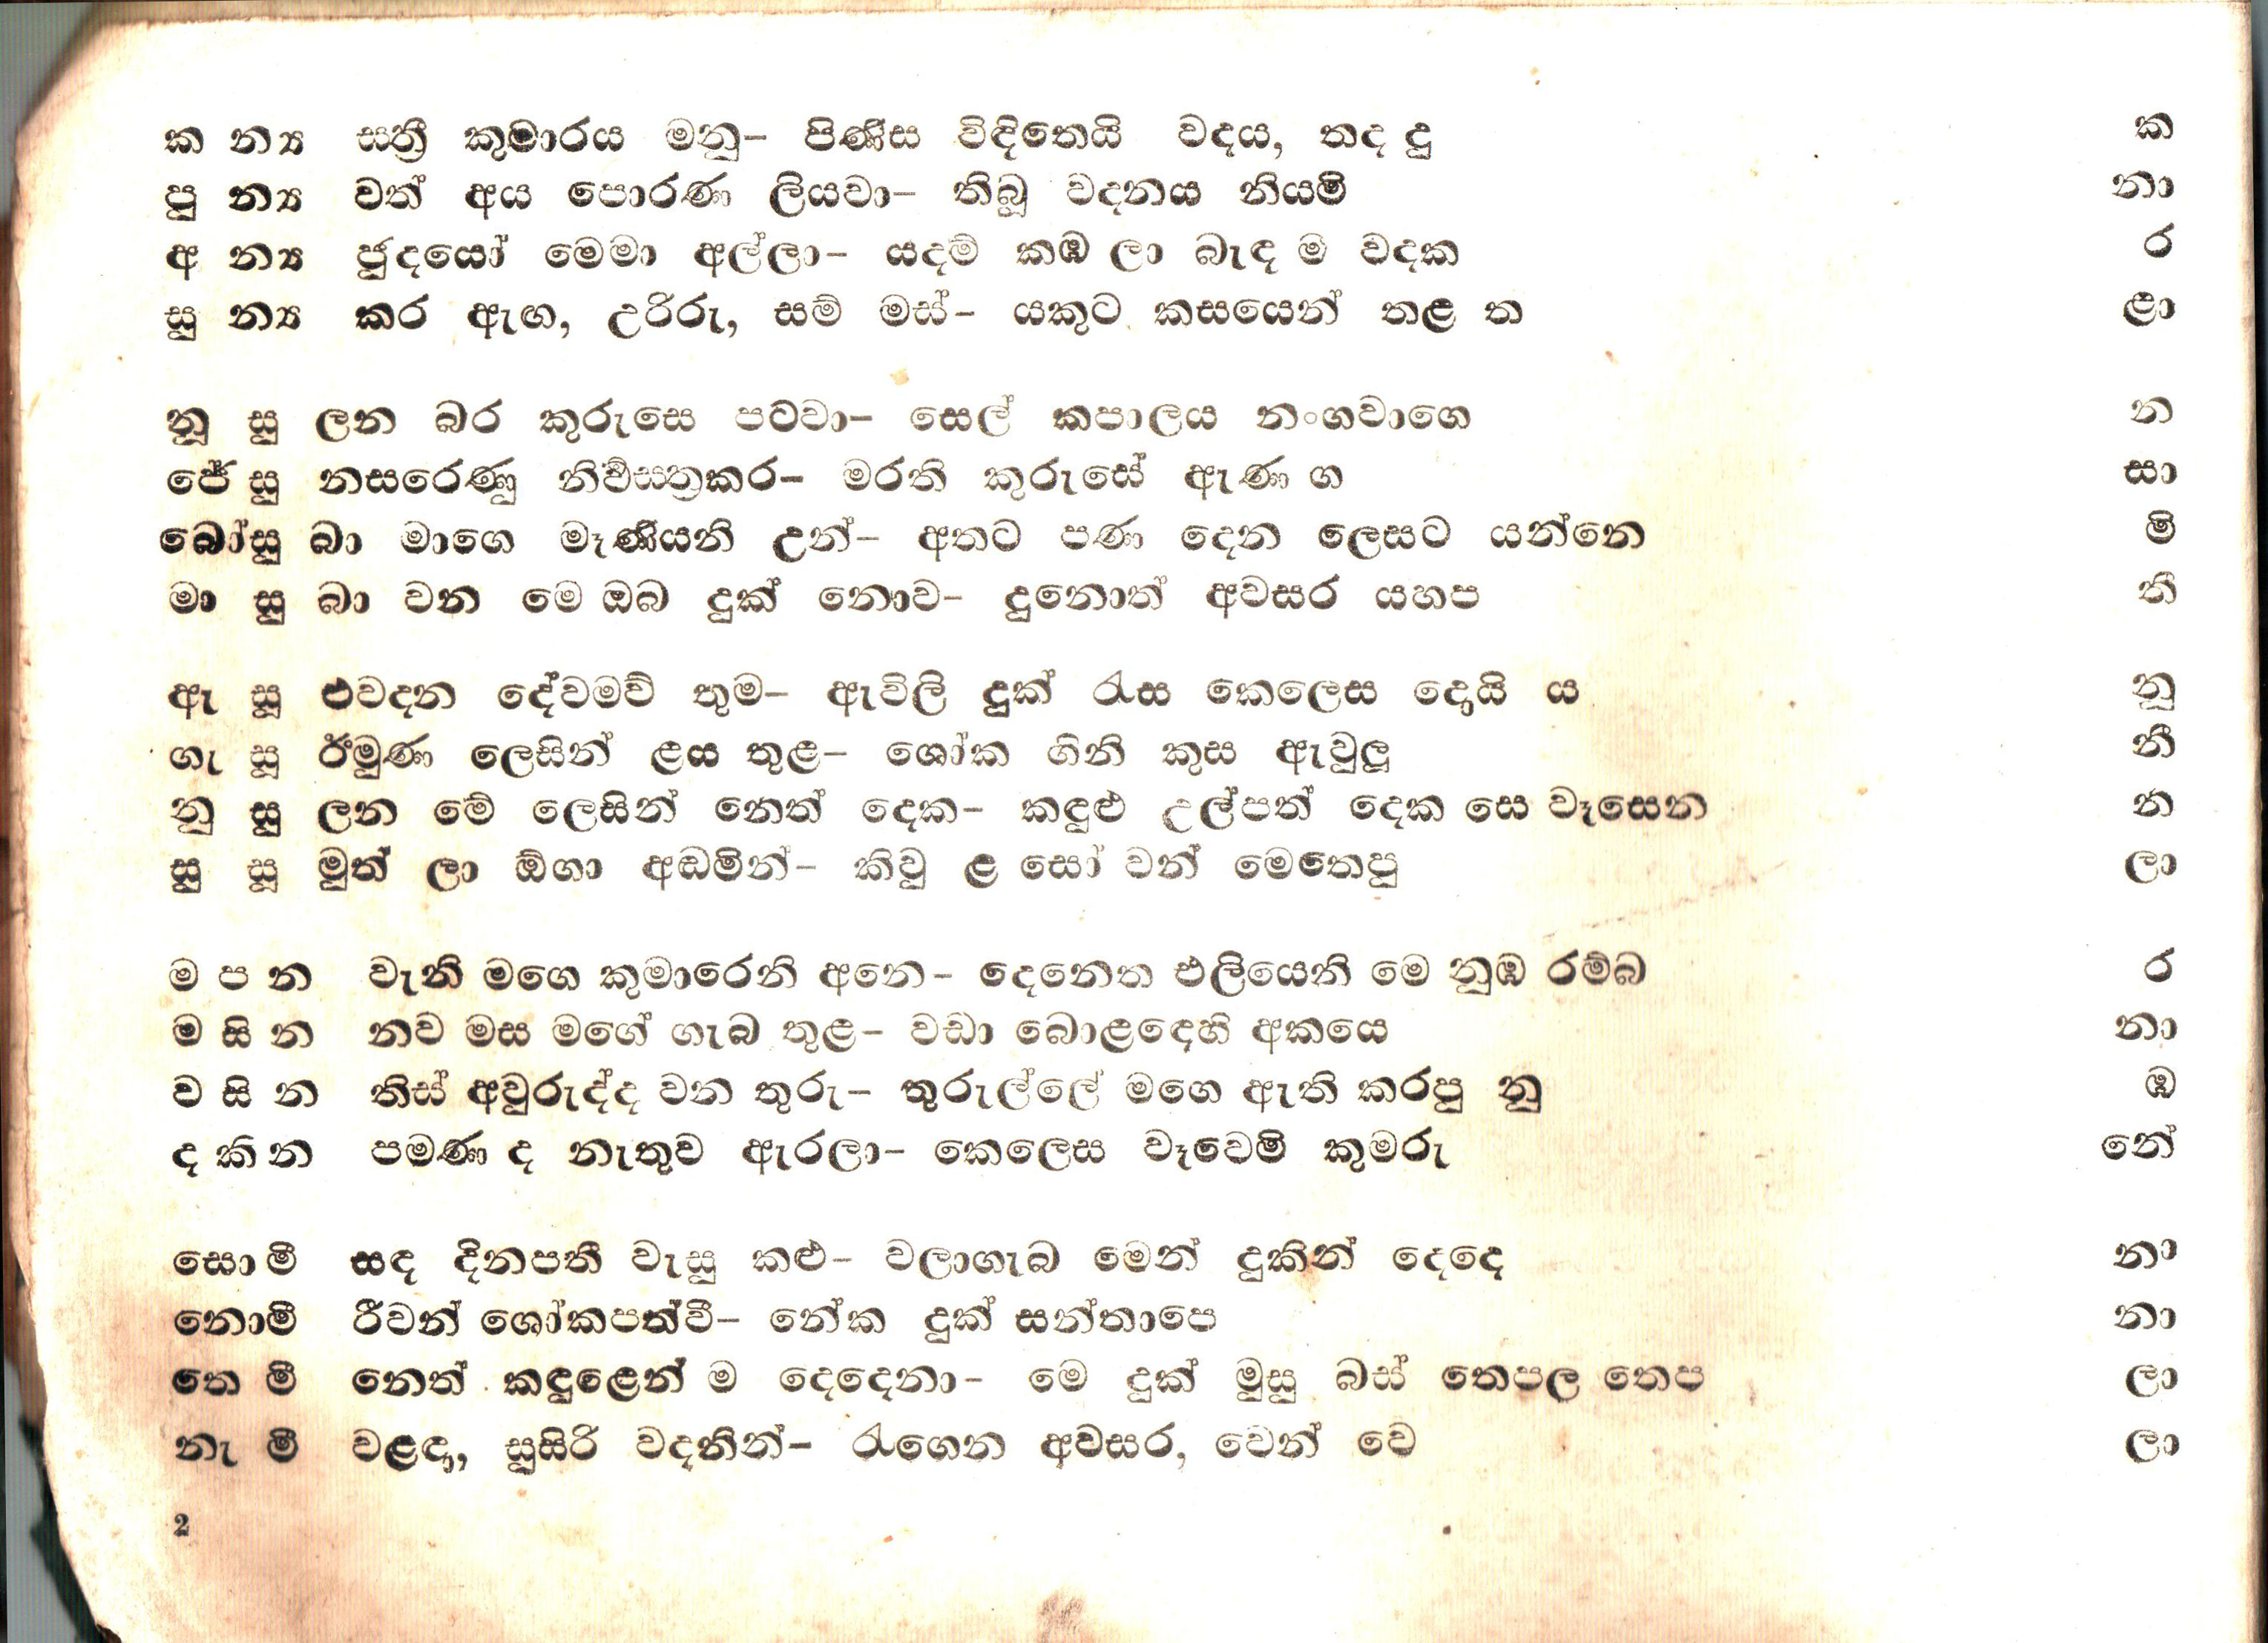 ක න්‍ය ස්ත්‍රී කුමාරය මනු- පිණිස විඳිතෙයි වදය, තද දු ක
පු න්‍ය වත් අය පොරණ ලියවා- තිබූ වදනය නියමි නා
අ න්‍ය ජුදයෝ මෙමා අල්ලා- යදම් කඹ ලා බැඳ ම වදක ර
සු න්‍ය කර ඇඟ, උරිරු, සම් මස්- යකුට කසයෙන් තළ ත ළා
නූ සු ලන බර කුරුසෙ පටවා- සෙල් කපාලය නංගවාගෙ න
ජේ සු නසරෙණු නිර්වස්ත්‍රකර- මරති කුරුසේ ඇණ ග සා
බෝසු බා මාගෙ මෑණියනි උන්- අතට පණ දෙන ලෙසට යන්නෙ මි
මා සු බා වන මෙ ඔබ දුක් නොව- දුනොත් අවසර යහප ති
ඇ සූ එවදන දේවමව් තුම- ඇවිලි දුක් රැස කෙලෙස දෙයි ය නූ
ගැ සූ ඊමුණ ලෙසින් ළය තුළ- ශෝක ගිනි කුස ඇවුලූ නී
නු සු ලන මේ ලෙසින් නෙත් දෙක- කඳුළු උල්පත් දෙක සෙ වෑසෙන න
සු සූ මුත් ලා ඕගා අඬමින්- කිවු ළ සෝ වන් මෙතෙපු ලා
ම ප න වැනි මගෙ කුමාරෙනි අනෙ- දෙනෙත එලියෙනි මෙ නුඹ රම්බ ර
ම සි න නව මස මගේ ගැබ තුළ- වඩා බොළඳෙහි අකයෙ නා
ව සි න තිස් අවුරුද්ද වන තුරු- තුරුල්ලේ මගෙ ඇති කරපු නු ඹ
ද කි න පමණ ද නැතුව ඇරලා- කෙලෙස වෑවෙමි කුමරු නේ
සොමි සඳ දිනපතී වැසු කළු- වලාගැබ මෙන් දුකින් දෙදෙ නා
නොමි රීවන් ශෝකපත්වී- නේක දුක් සන්තාපෙ නා
තෙ මී නෙත් කඳුළෙන් ම දෙදෙනා- මෙ දුක් මුසු බස් තෙපල තෙප ලා
නැ මී වළඳා, සුසිරි වදනින්- රැගෙන අවසර, වෙන් වෙ ලා
2